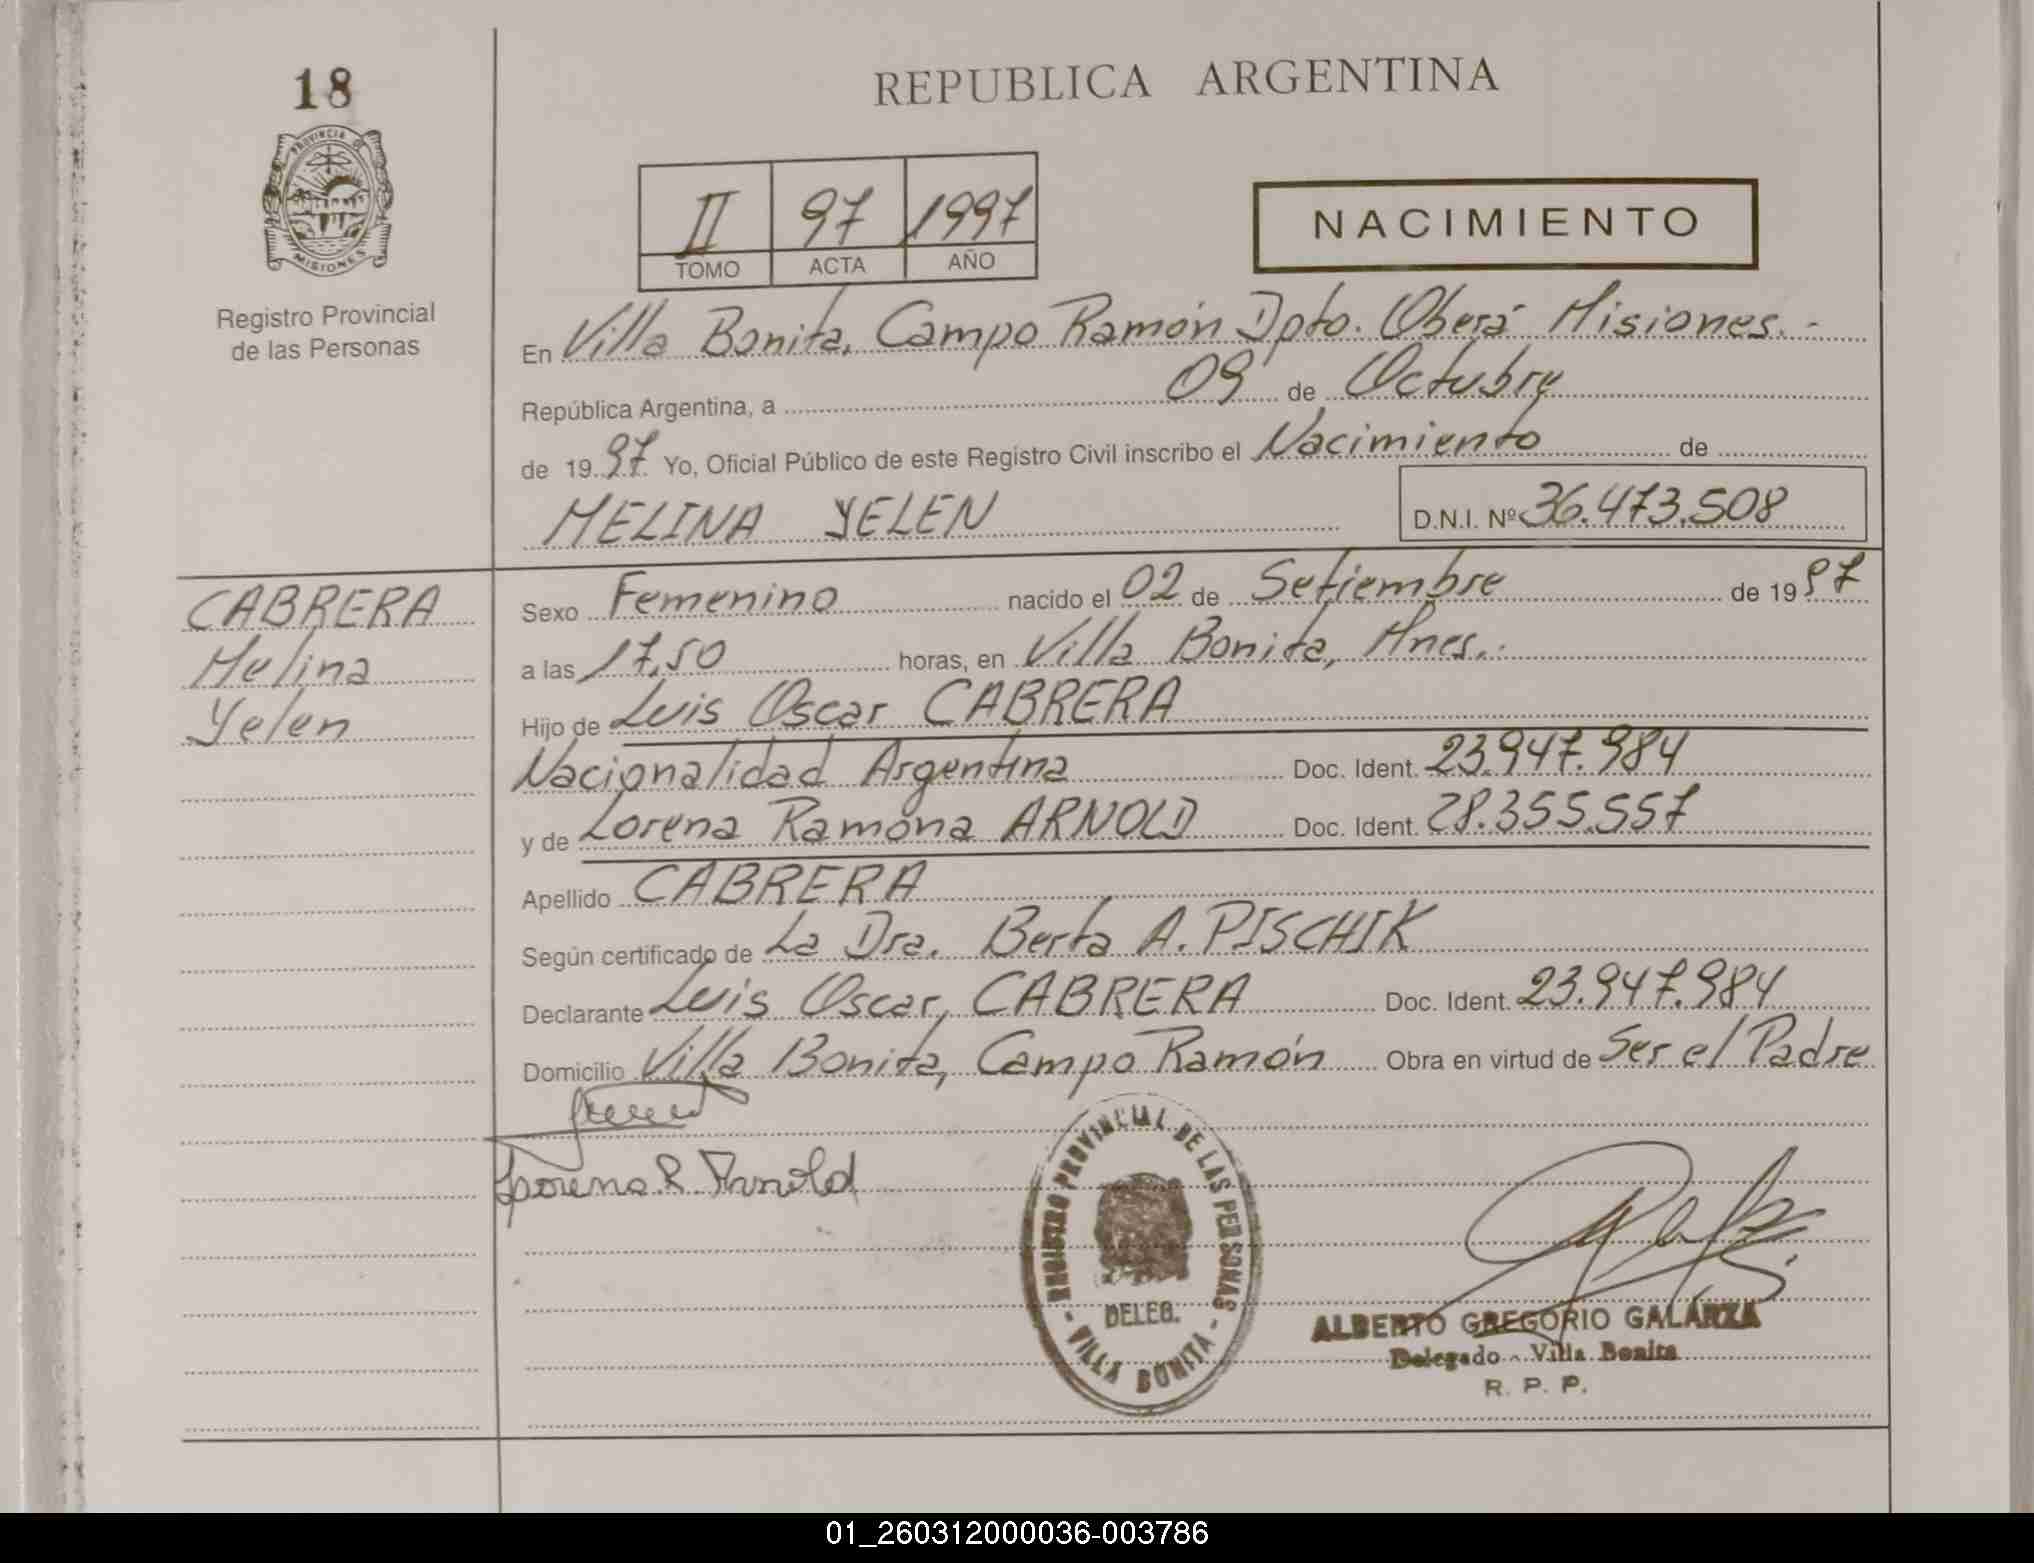 18
PROVINCIA DE
MISIONES
Registro Provincial
de las Personas
REPUBLICA ARGENTINA
II 97 1997
TOMO ACTA AÑO
NACIMIENTO
En Villa Bonita, Campo Ramón Dpto. Oberá Misiones.-
República Argentina, a 09 de Octubre
de 1997 Yo, Oficial Público de este Registro Civil inscribo el Nacimiento de
MELINA YELEN D.N.I. Nº 36.473.508
CABRERA
Melina
Yelen
Sexo Femenino nacido el 02 de Setiembre de 1997
a las 17,50 horas, en Villa Bonita, Mnes.-
Hijo de Luis Oscar CABRERA
Nacionalidad Argentina Doc. Ident. 23.947.984
y de Lorena Ramona ARNOLD Doc. Ident. 28.355.557
Apellido CABRERA
Según certificado de La Dra. Berta A. PISCHIK
Declarante Luis Oscar, CABRERA Doc. Ident. 23.947.984
Domicilio Villa Bonita, Campo Ramón Obra en virtud de Ser el Padre
Lorena R. Arnold
REGISTRO PROVINCIAL DE LAS PERSONAS
DELEG.
- VILLA BONITA -
ALBERTO GREGORIO GALARZA
Delegado - Villa Bonita
R. P. P.
01_260312000036-003786